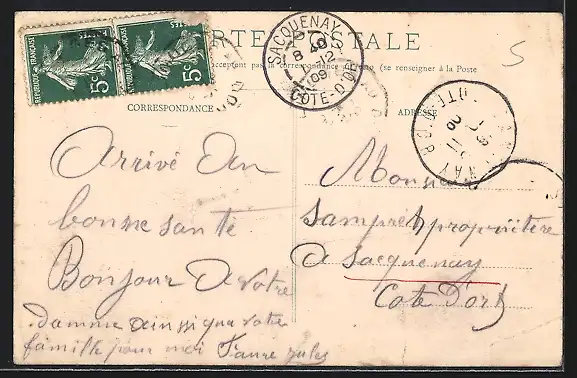 RÉPUBLIQUE FRANÇAISE 5c POSTES
5c
CARTE POSTALE
acceptent pas la correspondance au recto (se renseigner à la Poste
SACQUENAY
8 12
09
COTE-D'OR
5
CORRESPONDANCE
ADRESSE
Arrivé An
bonne santé
Bonjour A votre
damme ainssi qua votre
famille pour moi Faure jules
Monsieur
Sampréh propriétère
A Sacquenay
Cote D'or